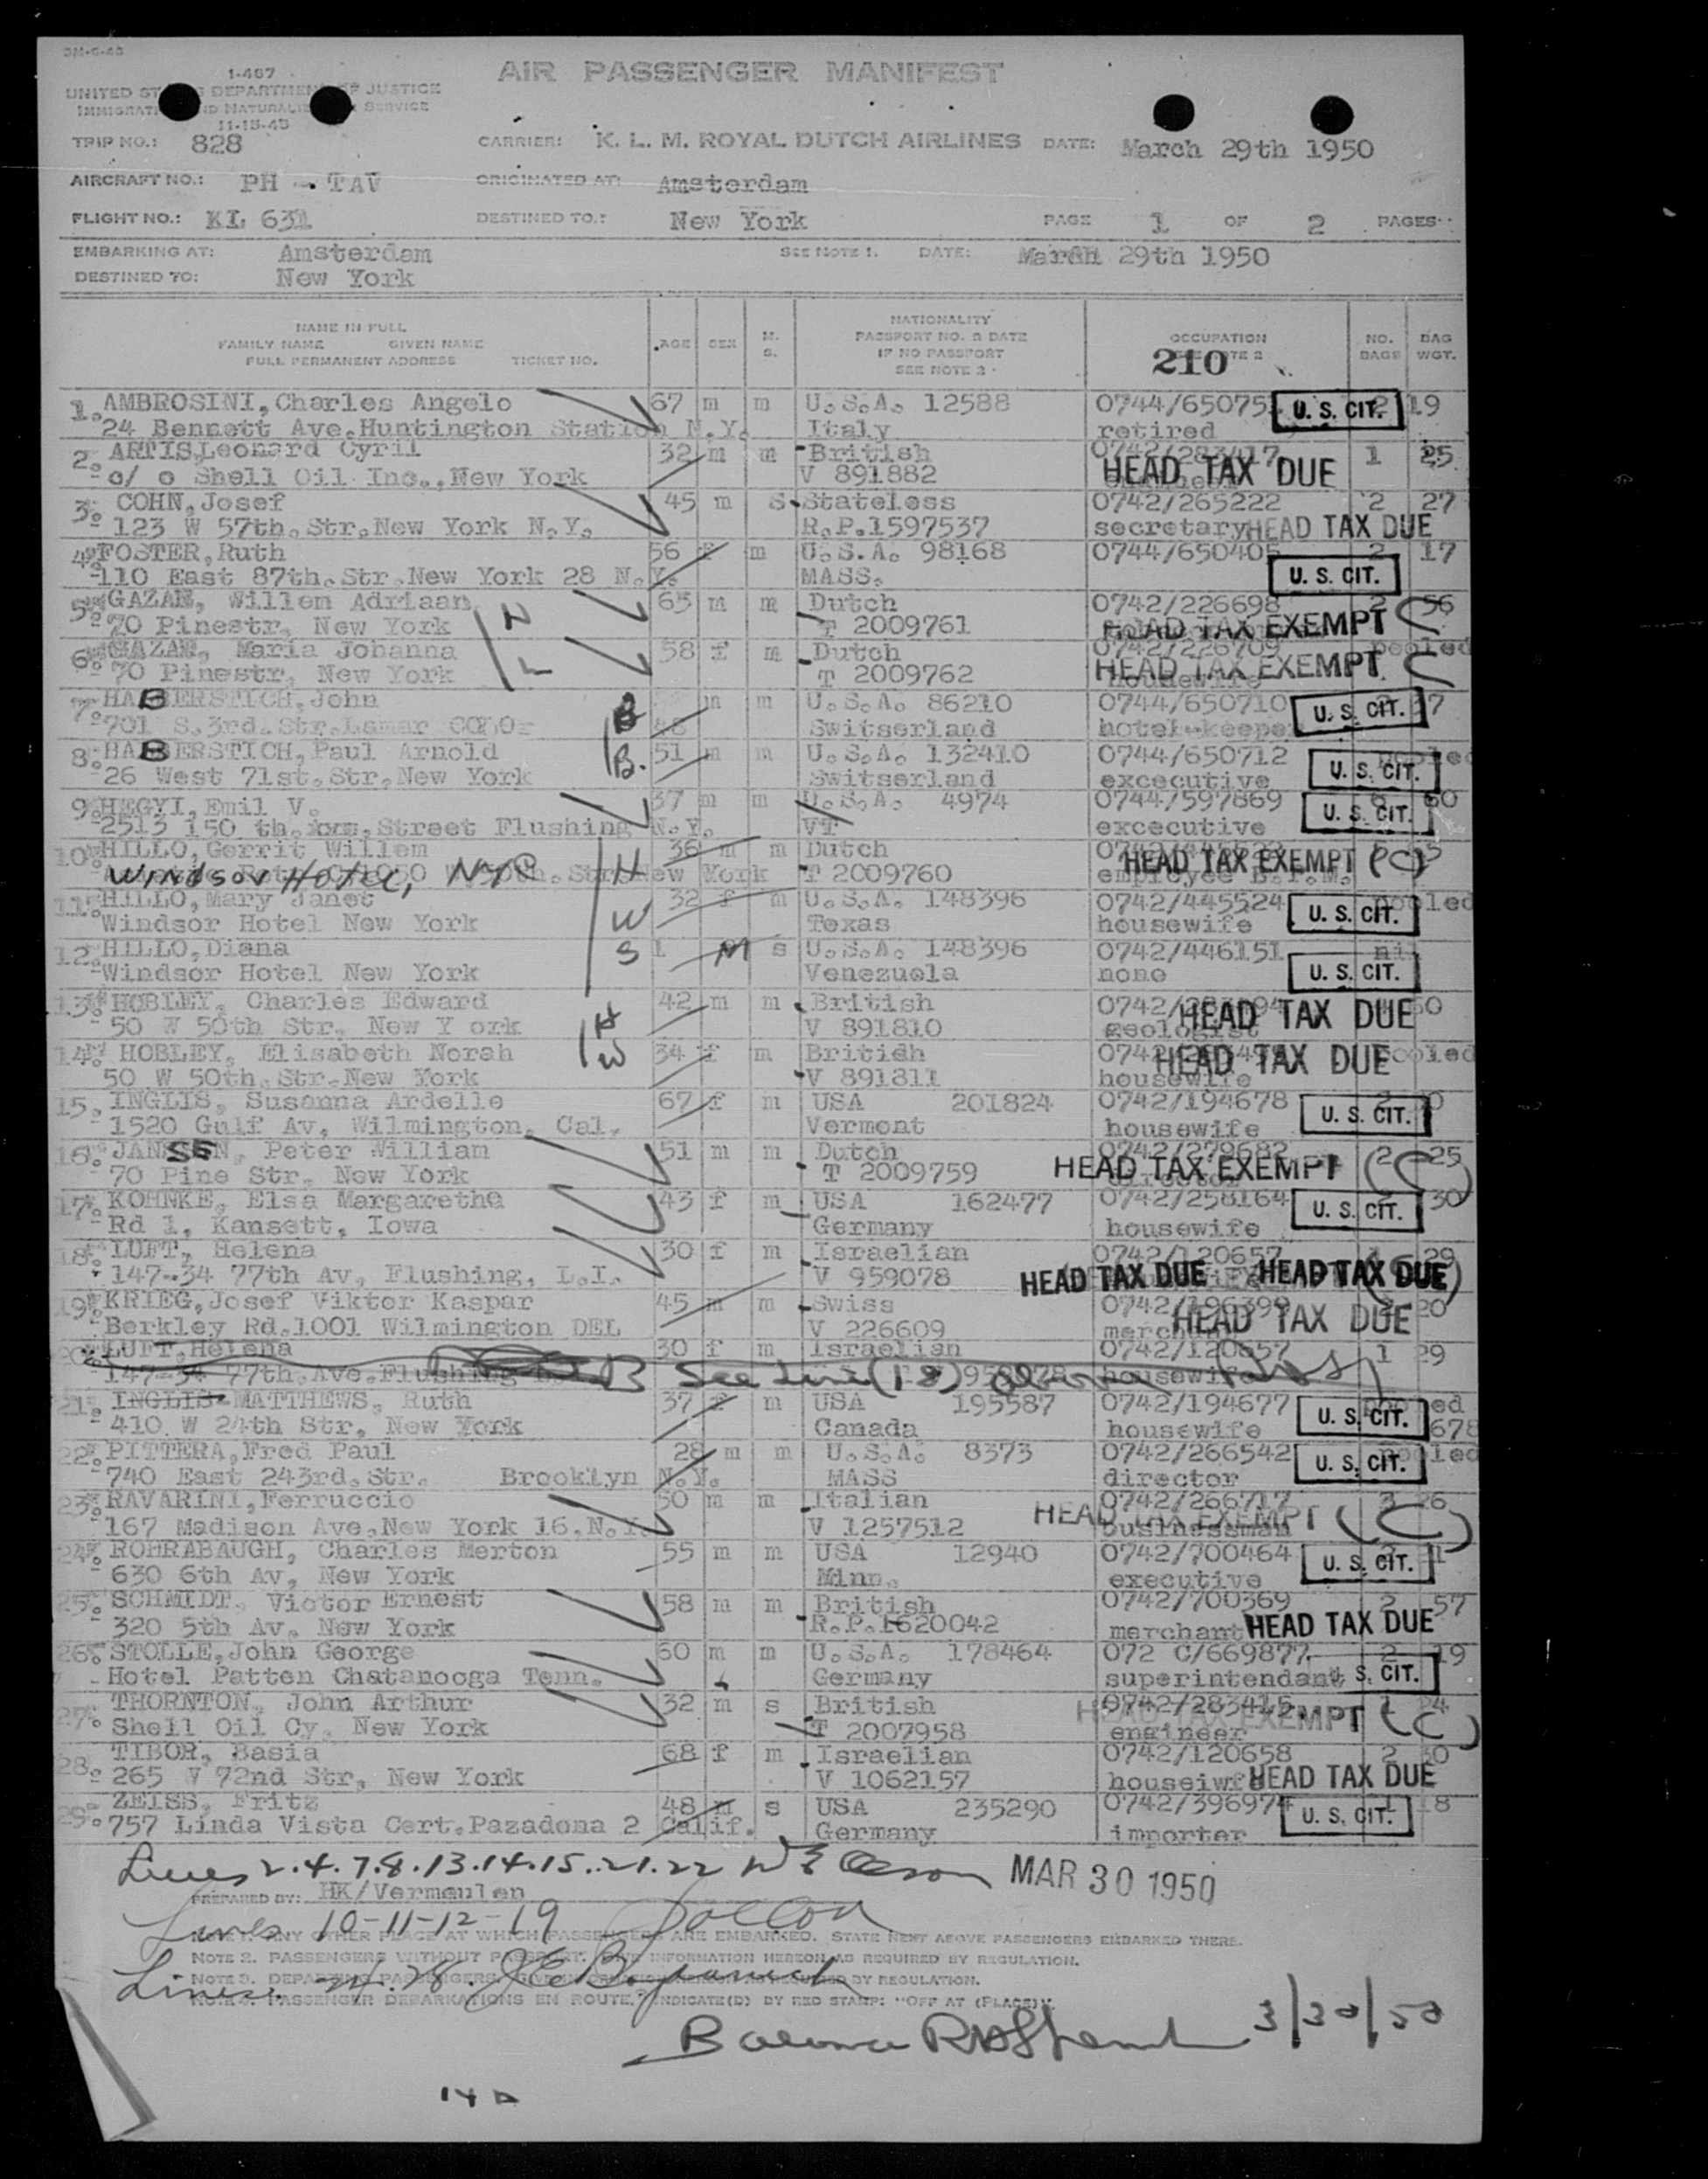 3M-6-48
1-467
AIR PASSENGER MANIFEST
UNITED ST DEPARTMENT OF JUSTICE
IMMIGRATI ND NATURALIZ SERVICE
11-15-45
TRIP NO.: 828 CARRIER: K. L. M. ROYAL DUTCH AIRLINES DATE: March 29th 1950
AIRCRAFT NO.: PH - TAV ORIGINATED AT: Amsterdam
FLIGHT NO.: KL 631 DESTINED TO.: New York PAGE 1 OF 2 PAGES
EMBARKING AT: Amsterdam SEE NOTE 1. DATE: March 29th 1950
DESTINED TO: New York
NAME IN FULL
FAMILY NAME GIVEN NAME
FULL PERMANENT ADDRESS TICKET NO.
AGE SEX M. S.
NATIONALITY
PASSPORT NO. & DATE
IF NO PASSPORT
SEE NOTE 3
OCCUPATION
210 TE 2
NO. BAGS BAG WGT.
1. AMBROSINI, Charles Angelo 67 m m U.S.A. 12588 0744/65075 U. S. CIT. 19
24 Bennett Ave.Huntington Station N.Y. Italy retired
2. ARTIS, Leonard Cyril 32 m m British 0742/283417 1 25
c/ o Shell Oil Inc., New York V 891882 HEAD TAX DUE
3. COHN, Josef 45 m S Stateless 0742/265222 2 27
123 W 57th.Str.New York N.Y. R.P.1597537 secretary HEAD TAX DUE
4. FOSTER, Ruth 56 f m U.S.A. 98168 0744/650405 2 17
110 East 87th.Str.New York 28 N.Y. MASS. U. S. CIT.
5. GAZAN, Willem Adriaan 63 m m Dutch 0742/226698 2 56
70 Pinestr, New York T 2009761 HEAD TAX EXEMPT C
6. GAZAN, Maria Johanna 58 f m Dutch 0742/226709 pooled
70 Pinestr, New York T 2009762 HEAD TAX EXEMPT C
7. HABERSTICH, John m m U.S.A. 86210 0744/650710 37
701 S.3rd.Str.Lamar COLO 48 Switserland hotel-keeper U. S. CIT.
8. HABERSTICH, Paul Arnold B. 51 m m U.S.A. 132410 0744/650712 pooled
26 West 71st.Str.New York Switserland excecutive U. S. CIT.
9. HEGYI, Emil V. 37 m m U.S.A. 4974 0744/597869 60
2513 150 th. Street Flushing N.Y. VT excecutive U. S. CIT.
10. HILLO, Gerrit Willem H 36 m m Dutch HEAD TAX EXEMPT (C)
Windsor Hotel, NYC New York T 2009760 employee
11. HILLO, Mary Janet W 32 f m U.S.A. 148396 0742/445524 pooled
Windsor Hotel New York Texas housewife U. S. CIT.
12. HILLO, Diana S 1 M s U.S.A. 148396 0742/446151 nil
Windsor Hotel New York Venezuela none U. S. CIT.
13. HOBLEY, Charles Edward H 42 m m British HEAD TAX DUE
50 W 50th Str, New Y ork V 891810 geologist
14. HOBLEY, Elisabeth Norah W 34 f m Britidh HEAD TAX DUE pooled
50 W 50th.Str.New York V 891811 housewife
15. INGLIS, Susanna Ardelle 67 f m USA 201824 0742/194678
1520 Gulf Av, Wilmington, Cal. Vermont housewife U. S. CIT.
16. JANSSEN, Peter William 51 m m Dutch 0742/279682 2 25
70 Pine Str, New York T 2009759 HEAD TAX EXEMPT (C)
17. KOHNKE, Elsa Margarethe 43 f m USA 162477 0742/258164 30
Rd 1, Kansett, Iowa Germany housewife U. S. CIT.
18. LUFT, Helena 30 f m Israelian 0742/120657 1 29
147-34 77th Av, Flushing, L.I. V 959078 HEAD TAX DUE HEAD TAX DUE
19. KRIEG, Josef Viktor Kaspar 45 m m Swiss 0742/196399 20
Berkley Rd.1001 Wilmington DEL V 226609 HEAD TAX DUE
20. LUFT, Helena 30 f m Israelian 0742/120657 1 29
147-34 77th.Ave.Flushing See Line (18) housewife
21. INGLIS-MATTHEWS, Ruth 37 f m USA 195587 0742/194677 pooled
410 W 24th Str, New York Canada housewife U. S. CIT. 678
22. PITTERA, Fred Paul 28 m m U.S.A. 8373 0742/266542 pooled
740 East 243rd.Str. Brooklyn N.Y. MASS director U. S. CIT.
23. RAVARINI, Ferruccio 50 m m Italian 0742/266717 3 26
167 Madison Ave.New York 16.N.Y. V 1257512 HEAD TAX EXEMPT (C) businessman
24. ROHRABAUGH, Charles Merton 55 m m USA 12940 0742/700464
630 6th Av, New York Minn. executive U. S. CIT.
25. SCHMIDT, Victor Ernest 58 m m British 0742/700369 2 57
320 5th Av, New York R.P.1620042 merchant HEAD TAX DUE
26. STOLLE, John George 60 m m U.S.A. 178464 072 C/669877 2 19
Hotel Patten Chatanooga Tenn. Germany superintendant S. CIT.
27. THORNTON, John Arthur 32 m s British 0742/283415 1 24
Shell Oil Cy, New York T 2007958 engineer HEAD TAX EXEMPT (C)
28. TIBOR, Basia 68 f m Israelian 0742/120658 2 30
265 W 72nd Str, New York V 1062157 HEAD TAX DUE
29. ZEISS, Fritz 48 m s USA 235290 0742/396974 18
757 Linda Vista Cert.Pazadona 2 Calif. Germany importer U. S. CIT.
Lines 2.4.7.8.13.14.15.21.22 MAR 30 1950
PREPARED BY: HK/Vermeulen
Lines 10-11-12-19
ANY OTHER PLACE AT WHICH PASSENGERS ARE EMBARKED. STATE NEXT ABOVE PASSENGERS EMBARKED THERE.
NOTE 2. PASSENGERS WITHOUT PASSPORT. INFORMATION HEREON AS REQUIRED BY REGULATION.
NOTE 3. DEPARTING PASSENGERS, BY REGULATION.
Lines
PASSENGER DEBARKATIONS EN ROUTE, INDICATE(D) BY RED STAMP: "OFF AT (PLACE)".
Balance 3/30/50